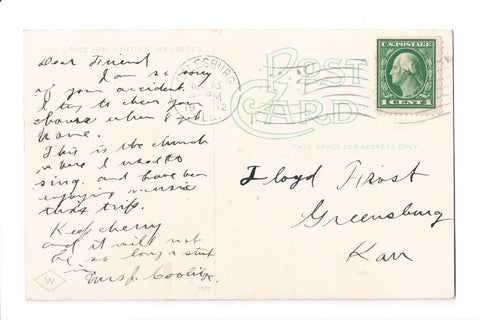 THIS SPACE FOR WRITING MESSAGES.
Dear Friend
I am so sorry
of your accident.
I try to cheer you
when I get
home.
This is the church
where I used to
sing. and have been
enjoying music
this trip.
Keep cherry
and it will not
be so long a
Mrs J. Coolidge.
W
POST
CARD
THIS SPACE FOR ADDRESS ONLY
ESBURG
13
PM
19 12
ILL.
U.S. POSTAGE
1 CENT 1
Floyd Frost
Greensburg
Kan